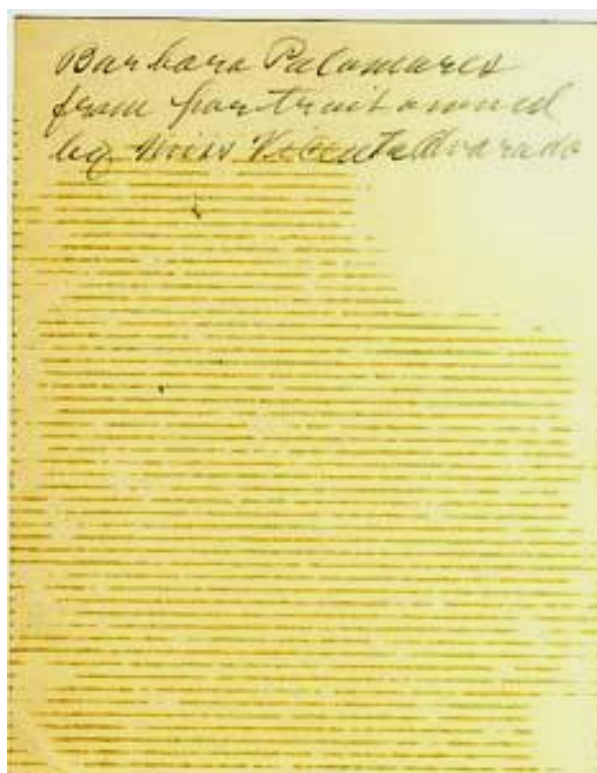 Barbara Palomares
from portrait owned
by Miss Vicenta Alvarado